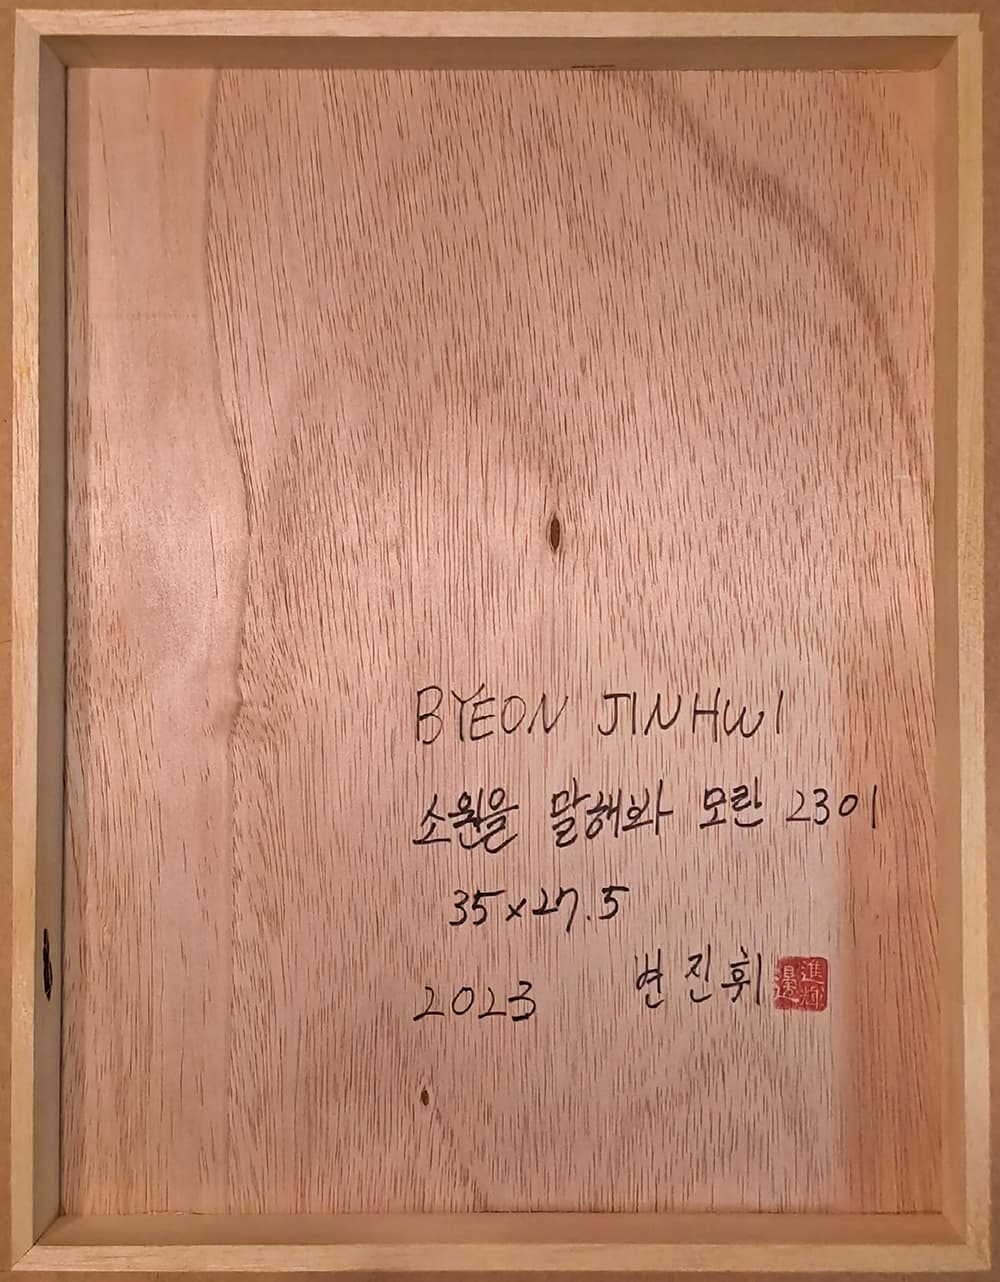 BYEON JINHWI
소원을 말해봐 모란 2301
35×27.5
2023 변진휘 邊進輝